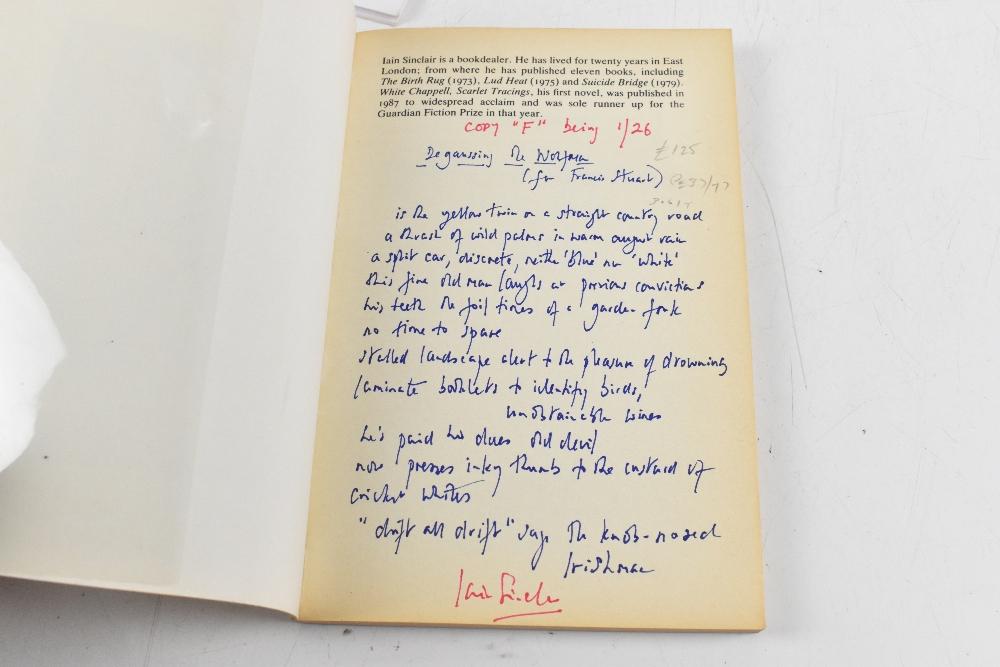 Iain Sinclair is a bookdealer. He has lived for twenty years in East
London; from where he has published eleven books, including
The Birth Rug (1973), Lud Heat (1975) and Suicide Bridge (1979).
White Chappell, Scarlet Tracings, his first novel, was published in
1987 to widespread acclaim and was sole runner up for the
Guardian Fiction Prize in that year.
COPY "F" being 1/26
Degaussing The Wolfman
£125
(for Francis Stuart)
is the yellow twin on a straight country road
a thrash of wild palms in warm august rain
a split car, discrete, neither 'blue' nor 'white'
this fine old man laughs at previous convictions
his teeth the foil tines of a garden fork
no time to spare
stalled landscape alert to the pleasure of drowning
laminate booklets to identify birds,
unobtainable wines
he's paid his dues old devil
now presses inky thumb to the custard of
cricket whites
"drift all drift" says the knob-nosed
Irishman
Iain Sinclair